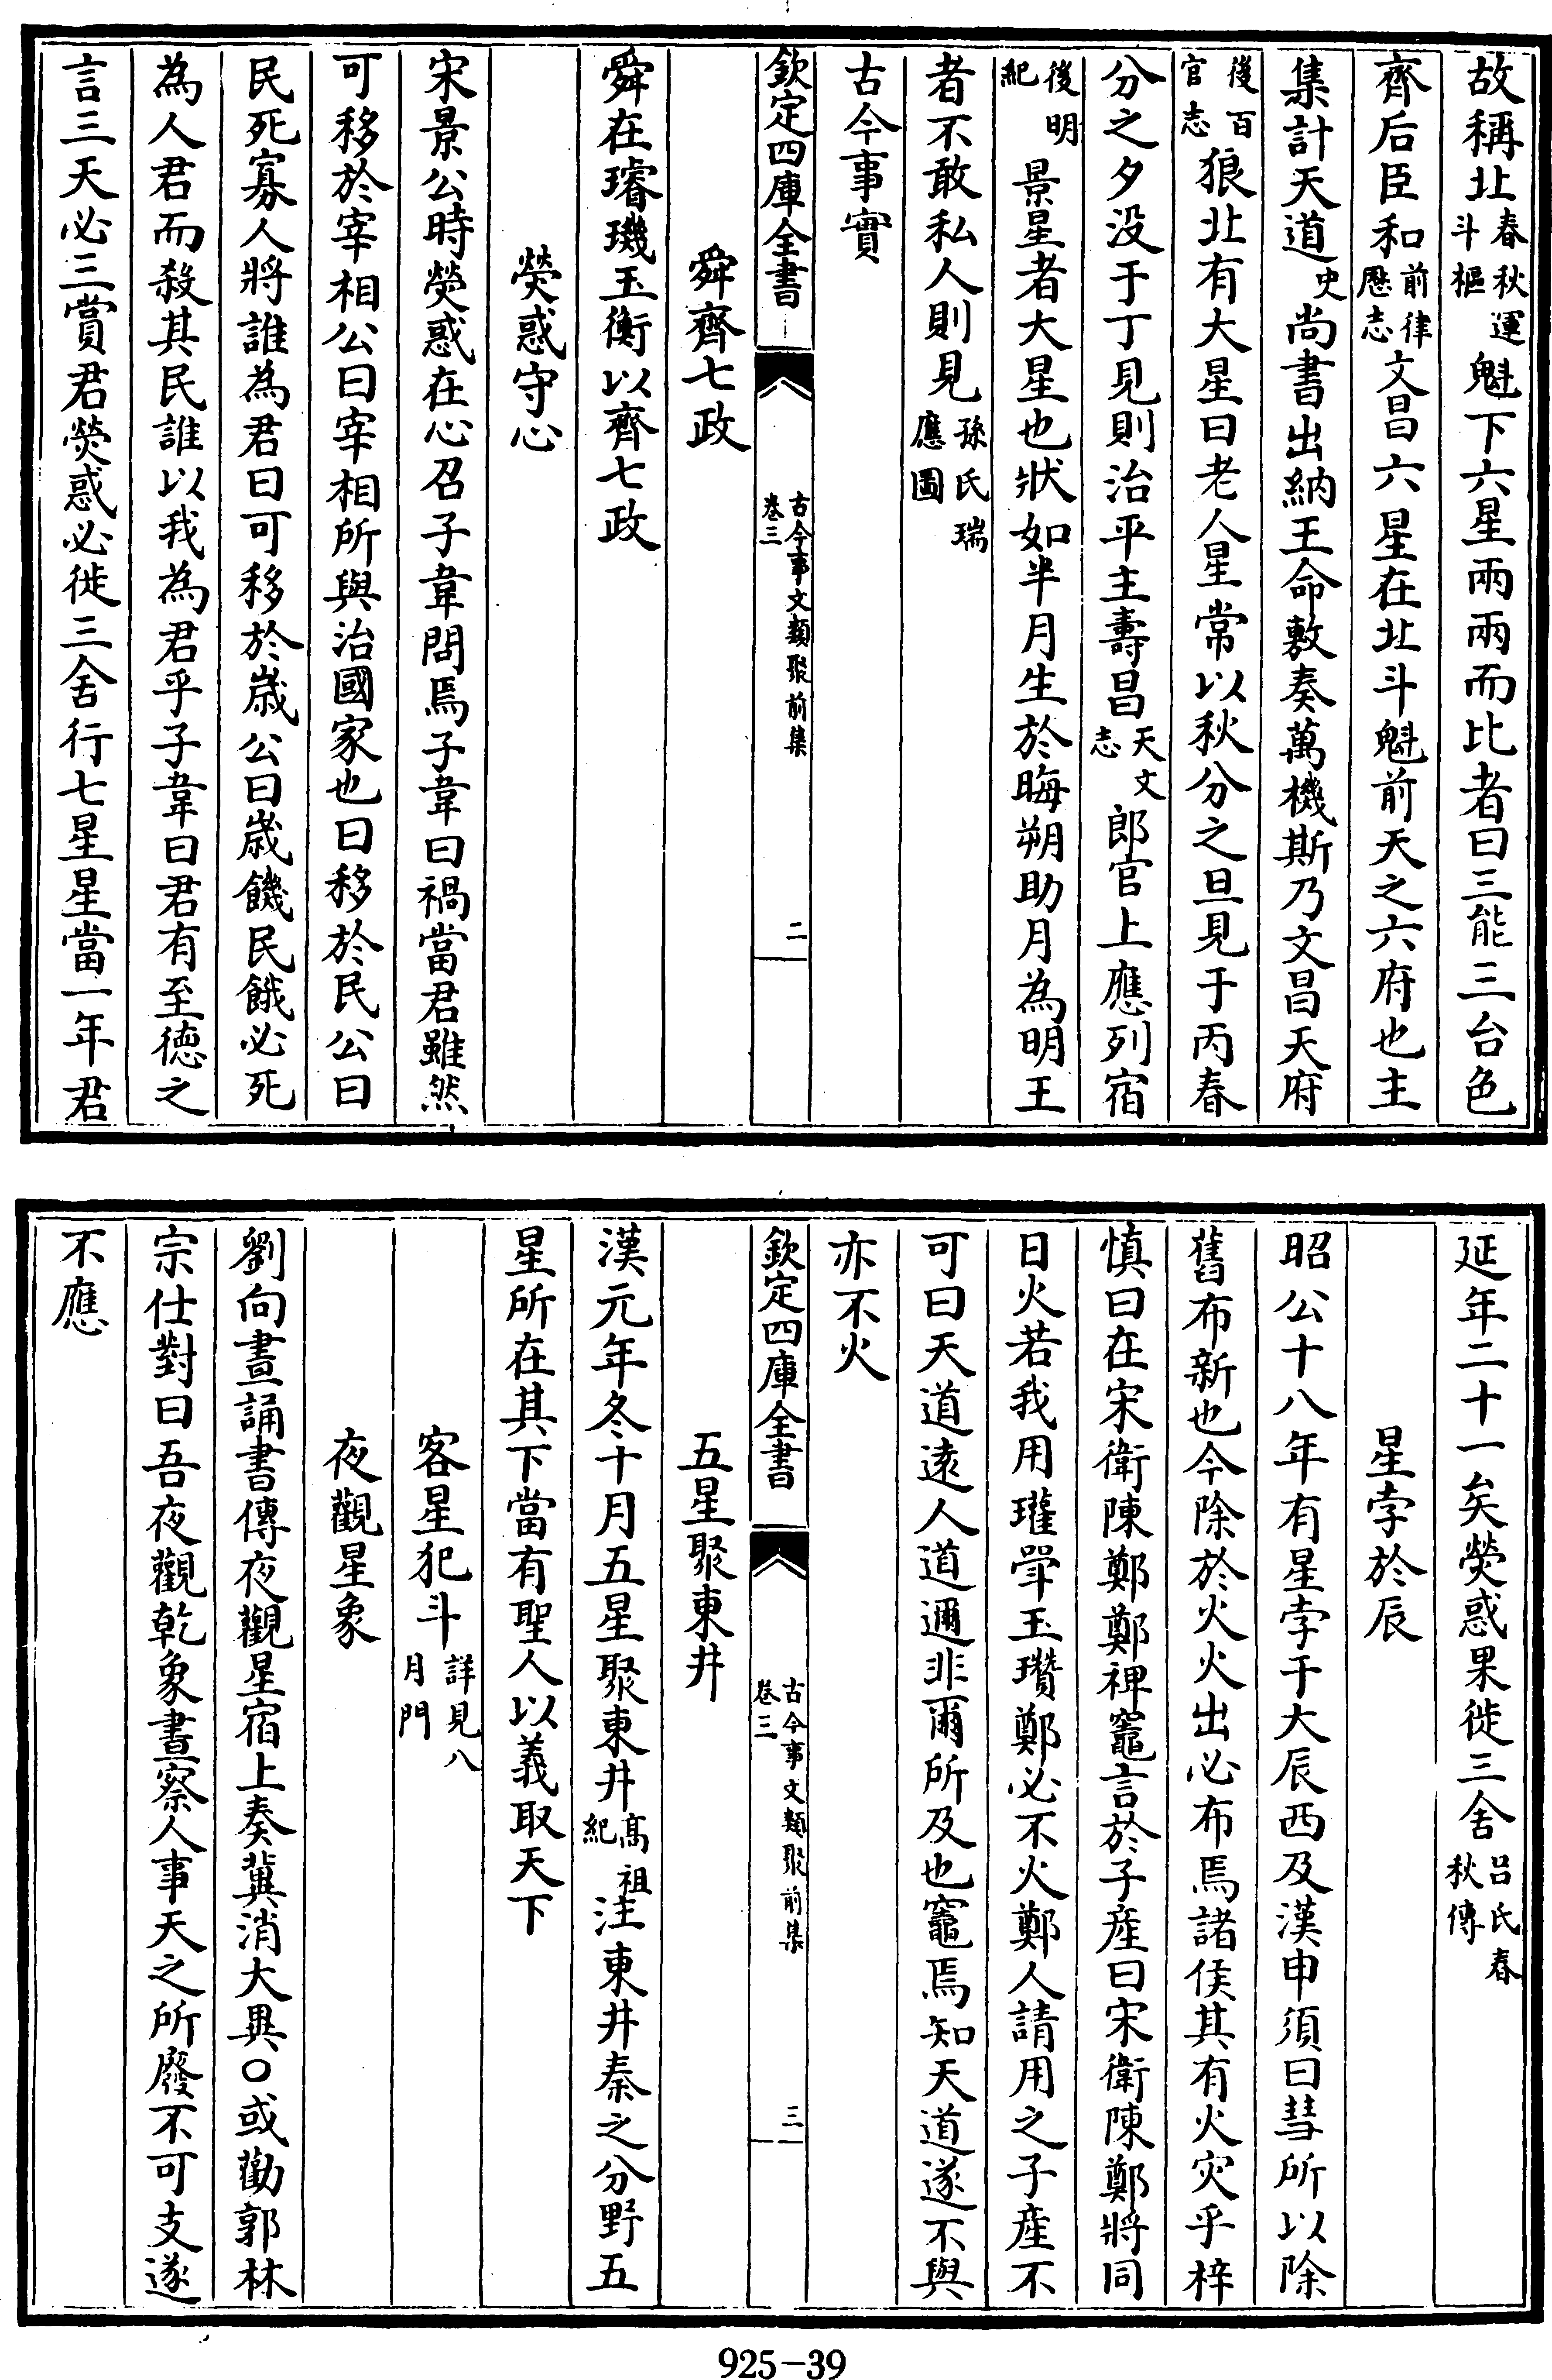 故稱北春秋運斗樞魁下六星兩兩而比者曰三能三台色
齊后臣和前律厯志文昌六星在北斗魁前天之六府也主
集計天道史尚書出納王命敷奏萬機斯乃文昌天府
後百官志狼北有大星曰老人星常以秋分之旦見于丙春
分之夕没于丁見則治平主壽昌天文志郎官上應列宿
後明紀景星者大星也狀如半月生於晦朔助月為明王
者不敢私人則見孫氏瑞應圖
古今事實
欽定四庫全書
古今事文類聚前集
卷三
二
舜齊七政
舜在璿璣玉衡以齊七政
熒惑守心
宋景公時熒惑在心召子韋問焉子韋曰禍當君雖然
可移於宰相公曰宰相所與治國家也曰移於民公曰
民死寡人將誰為君曰可移於歲公曰歲饑民餓必死
為人君而殺其民誰以我為君乎子韋曰君有至德之
言三天必三賞君熒惑必徙三舍行七星星當一年君
延年二十一矣熒惑果徙三舍吕氏春秋傳
星孛於辰
昭公十八年有星孛于大辰西及漢申須曰彗所以除
舊布新也今除於火火出必布焉諸侯其有火灾乎梓
慎曰在宋衛陳鄭鄭裨竈言於子產曰宋衛陳鄭將同
日火若我用瓘斝玉瓚鄭必不火鄭人請用之子產不
可曰天道遠人道邇非爾所及也竈焉知天道遂不與
亦不火
欽定四庫全書
古今事文類聚前集
卷三
三
五星聚東井
漢元年冬十月五星聚東井高祖紀注東井秦之分野五
星所在其下當有聖人以義取天下
客星犯斗詳見八月門
夜觀星象
劉向晝誦書傳夜觀星宿上奏冀消大異○或勸郭林
宗仕對曰吾夜觀乾象晝察人事天之所廢不可支遂
不應
925-39